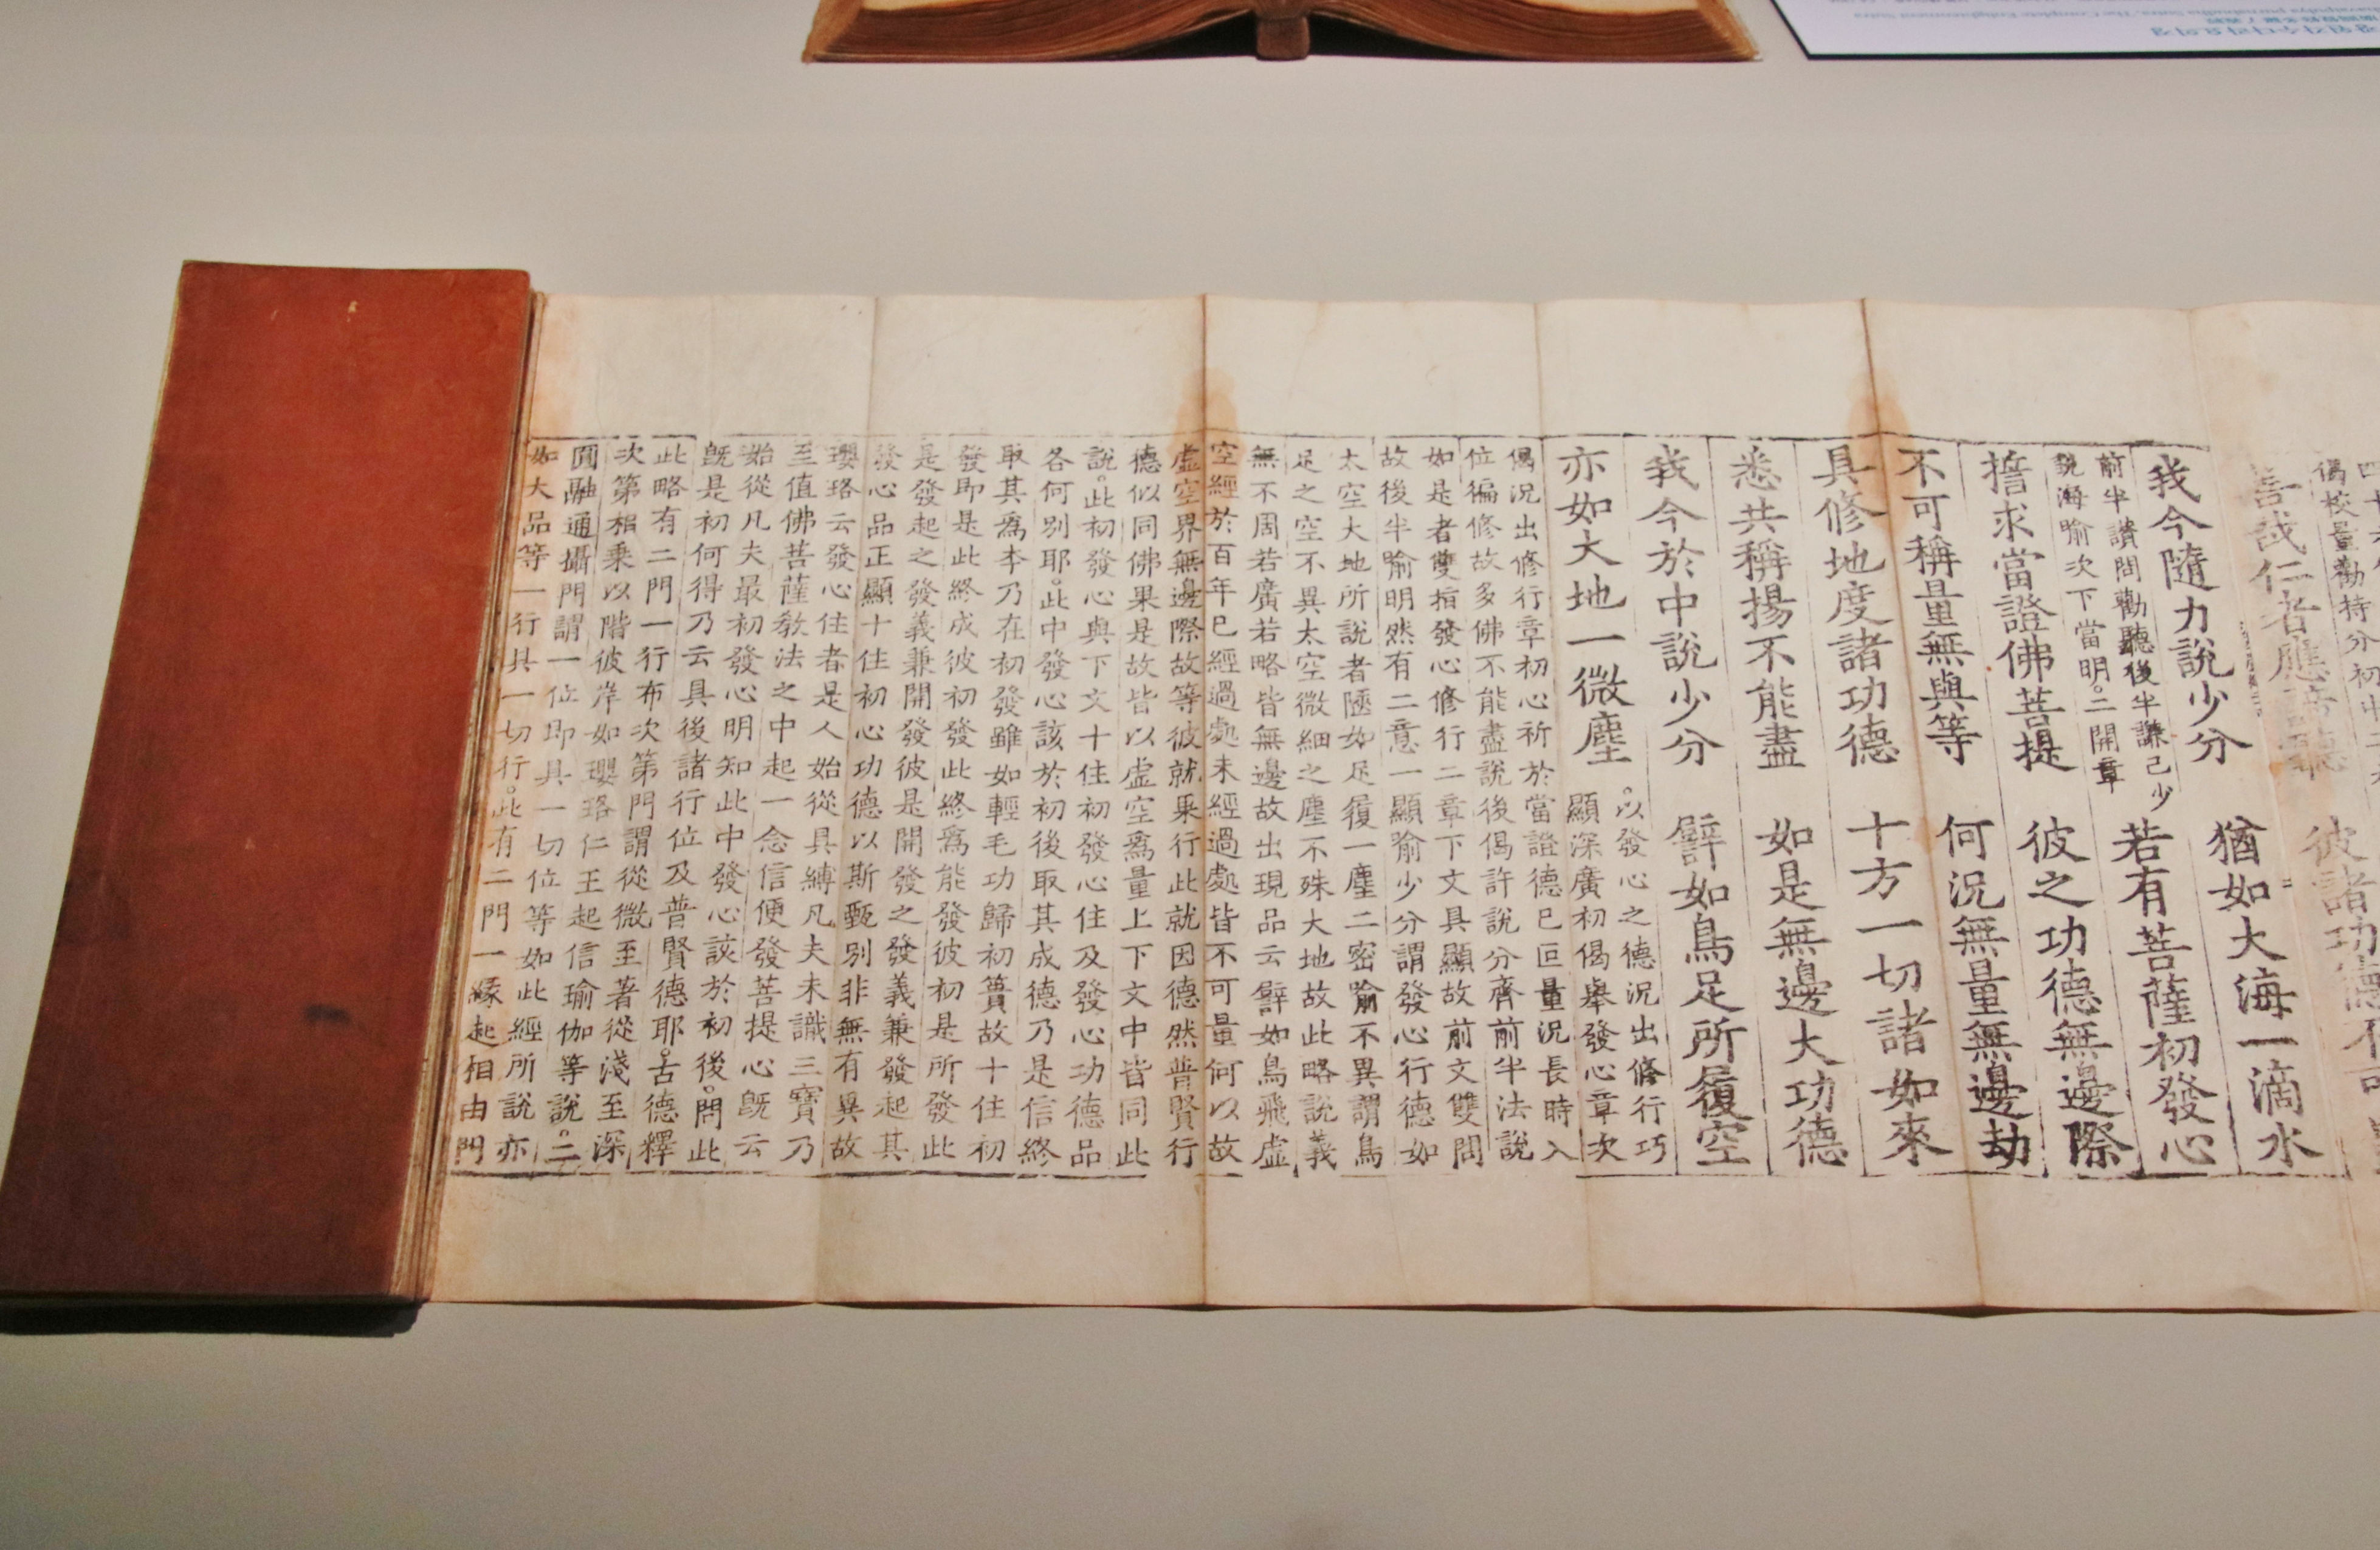 偈校量勸持分初中二
善哉仁者應諦聽 彼諸功德不可
我今隨力說少分 猶如大海一滴水
前半讚問勸聽後半謙己少
說海喻次下當明。二開章
若有菩薩初發心
誓求當證佛菩提 彼之功德無邊際
不可稱量無與等 何況無量無邊劫
具修地度諸功德 十方一切諸如來
悉共稱揚不能盡 如是無邊大功德
我今於中說少分 譬如鳥足所履空
亦如大地一微塵
。以發心之德況出修行巧
顯深廣初偈舉發心章次
偈況出修行章初心祈於當證德已叵量況長時入
位徧修故多佛不能盡說後偈許說分齊前半法說
如是者雙指發心修行二章下文具顯故前文雙問
故後半喻明然有二意一顯喻少分謂發心行德如
太空大地所說者陋如足履一塵二密喻不異謂鳥
足之空不異太空微細之塵不殊大地故此略說義
無不周若廣若略皆無邊故出現品云譬如鳥飛虛
空經於百年已經過處未經過處皆不可量何以故
虛空界無邊際故等彼就果行此就因德然普賢行
德似同佛果是故皆以虛空爲量上下文中皆同此
說。此初發心與下文十住初發心住及發心功德品
各何別耶。此中發心該於初後取其成德乃是信終
取其爲本乃在初發雖如輕毛功歸初簣故十住初
發即是此終成彼初發此終爲能發彼初是所發此
是發起之發義兼開發彼是開發之發義兼發起其
發心品正顯十住初心功德以斯甄別非無有異故
瓔珞云發心住者是人始從具縛凡夫未識三寶乃
至值佛菩薩教法之中起一念信便發菩提心既云
始從凡夫最初發心明知此中發心該於初後。問此
既是初何得乃云具後諸行位及普賢德耶。古德釋
此略有二門一行布次第門謂從微至著從淺至深
次第相乘以階彼岸如瓔珞仁王起信瑜伽等說。二
圓融通攝門謂一位即具一切位等如此經所說亦
如大品等一行具一切行。此有二門一緣起相由門